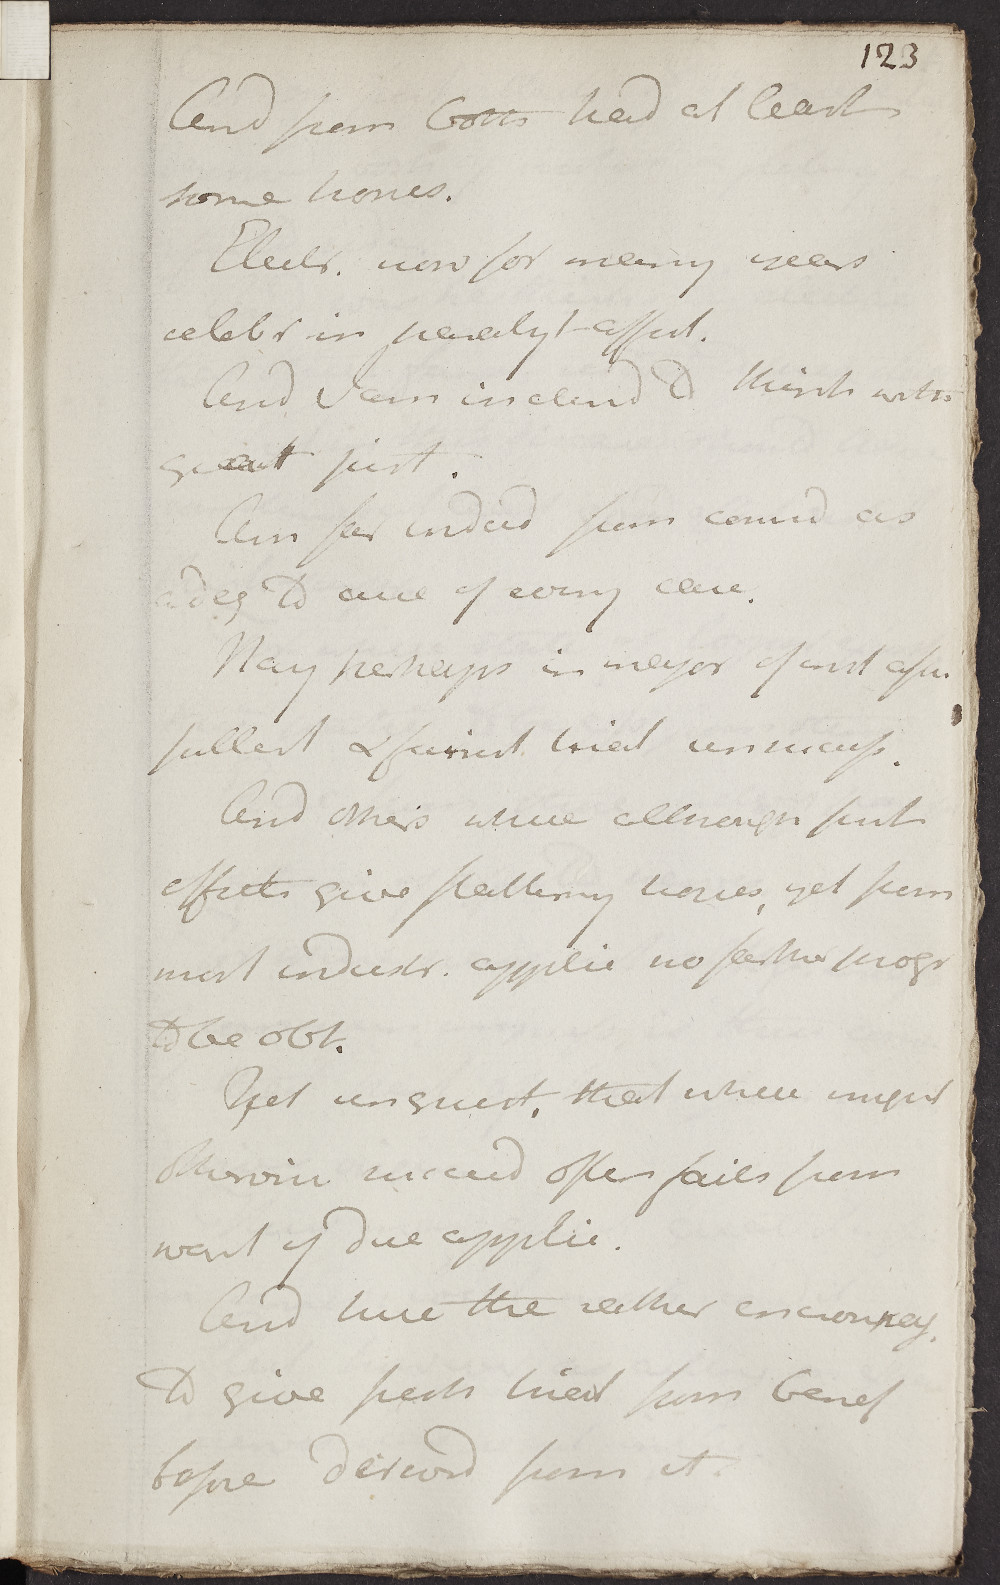 123
And from both had at least
some hopes.
Electr. now for many years
celebr in paralyt affect.
And I am inclind to think with
great just.
Am far indeed from consid as
adeq to cure of every case.
Nay perhaps in major of inst after
fullest & fairest trial unsuccess.
And others where although first
effects give flattering hopes, yet from
most industr. applic no farther progr
to be obt.
Yet unquest. that where might
otherwise succeed often fails from
want of due applic.
And here the rather encourag.
to give fresh trial from benef
before derived from it.